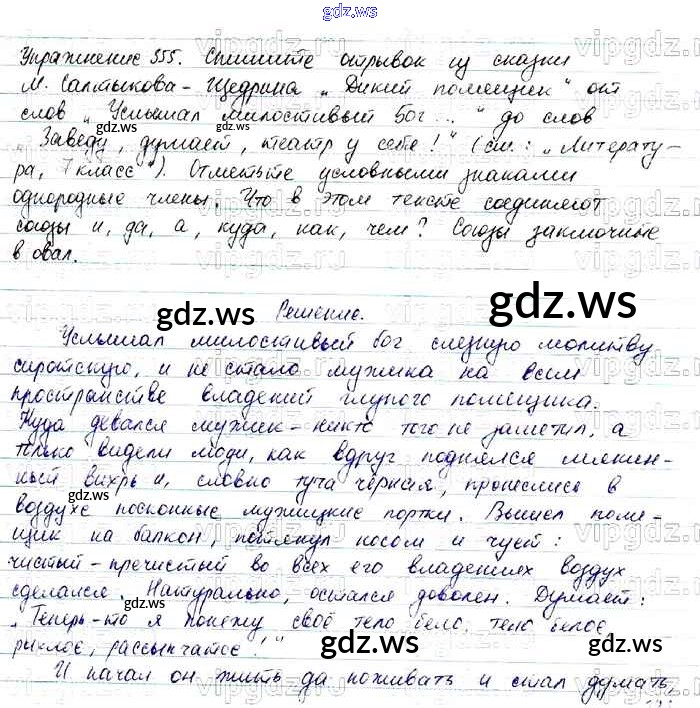 gdz.ws
Упражнение 355. Спишите отрывок из сказки
М. Салтыкова-Щедрина „Дикий помещик" от
слов „Услышал милостивый Бог..." до слов
„Заведу, думает, театр у себя!" (см.: „Литерату-
ра, 7 класс"). Отметьте условными знаками
однородные члены. Что в этом тексте соединяют
союзы и, да, а, куда, как, чем? Союзы заключите
в овал.
Решение.
gdz.ws gdz.ws gdz.ws
Услышал милостивый бог слезную молитву
сиротскую, и не стало мужика на всем
пространстве владений глупого помещика.
Куда девался мужик - никто того не заметил, а
только видели люди, как вдруг поднялся мякин-
ный вихрь и, словно туча чёрная, пронеслись в
воздухе посконные мужицкие портки. Вышел поме-
щик на балкон, потянул носом и чует:
чистый-пречистый во всех его владениях воздух
сделался. Натурально, остался доволен. Думает:
„Теперь-то я понежу своё тело бело, тело белое,
рыхлое, рассыпчатое!"
И начал он жить да поживать и стал думать,
gdz.ws gdz.ws gdz.ws
gdz.ws gdz.ws gdz.ws